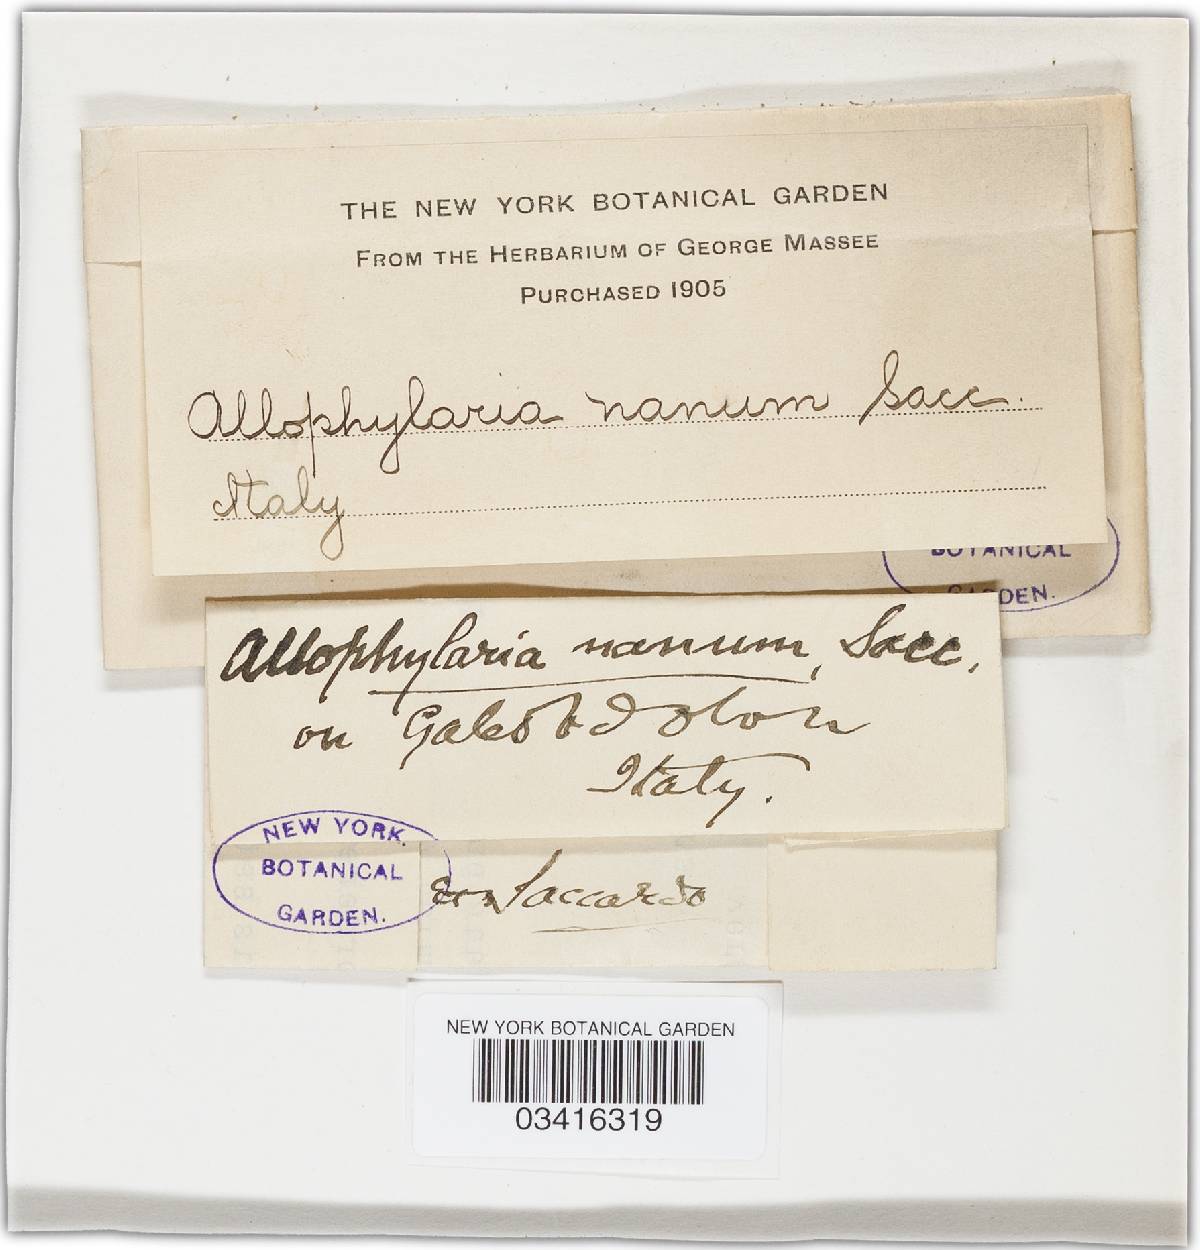 THE NEW YORK BOTANICAL GARDEN
FROM THE HERBARIUM OF GEORGE MASSEE
PURCHASED 1905
Allophylaria nanum Sacc.
Italy
BOTANICAL
GARDEN.
Allophylaria nanum, Sacc.
on Galeobdolon
Italy.
NEW YORK.
BOTANICAL
GARDEN.
Saccardo
NEW YORK BOTANICAL GARDEN
03416319